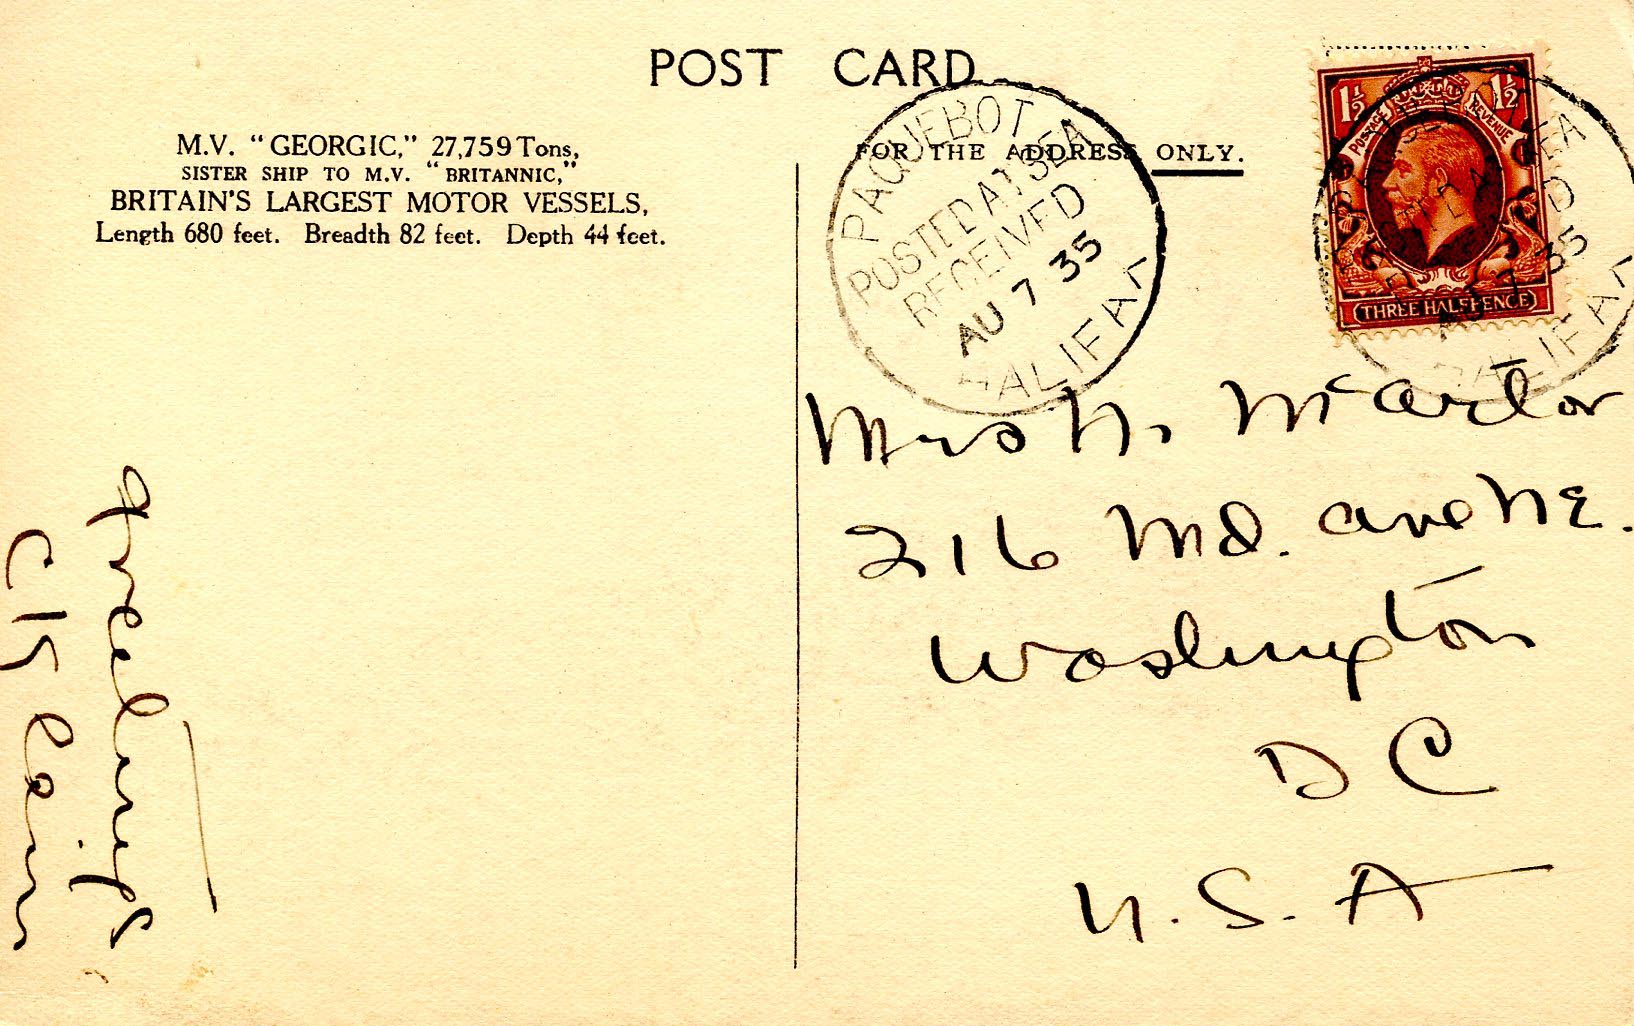 POST CARD
M.V. "GEORGIC," 27,759 Tons,
SISTER SHIP TO M.V. "BRITANNIC,"
BRITAIN'S LARGEST MOTOR VESSELS,
Length 680 feet. Breadth 82 feet. Depth 44 feet.
FOR THE ADDRESS ONLY.
PAQUEBOT
POSTED AT SEA
RECEIVED
AU 7 35
HALIFAX
1½ 1½
POSTAGE REVENUE
THREE HALFPENCE
AU 7 35
HALIFAX
Mrs N. McCartor
216 Md. ave NE.
Washington
D C
U.S.A
Greetings